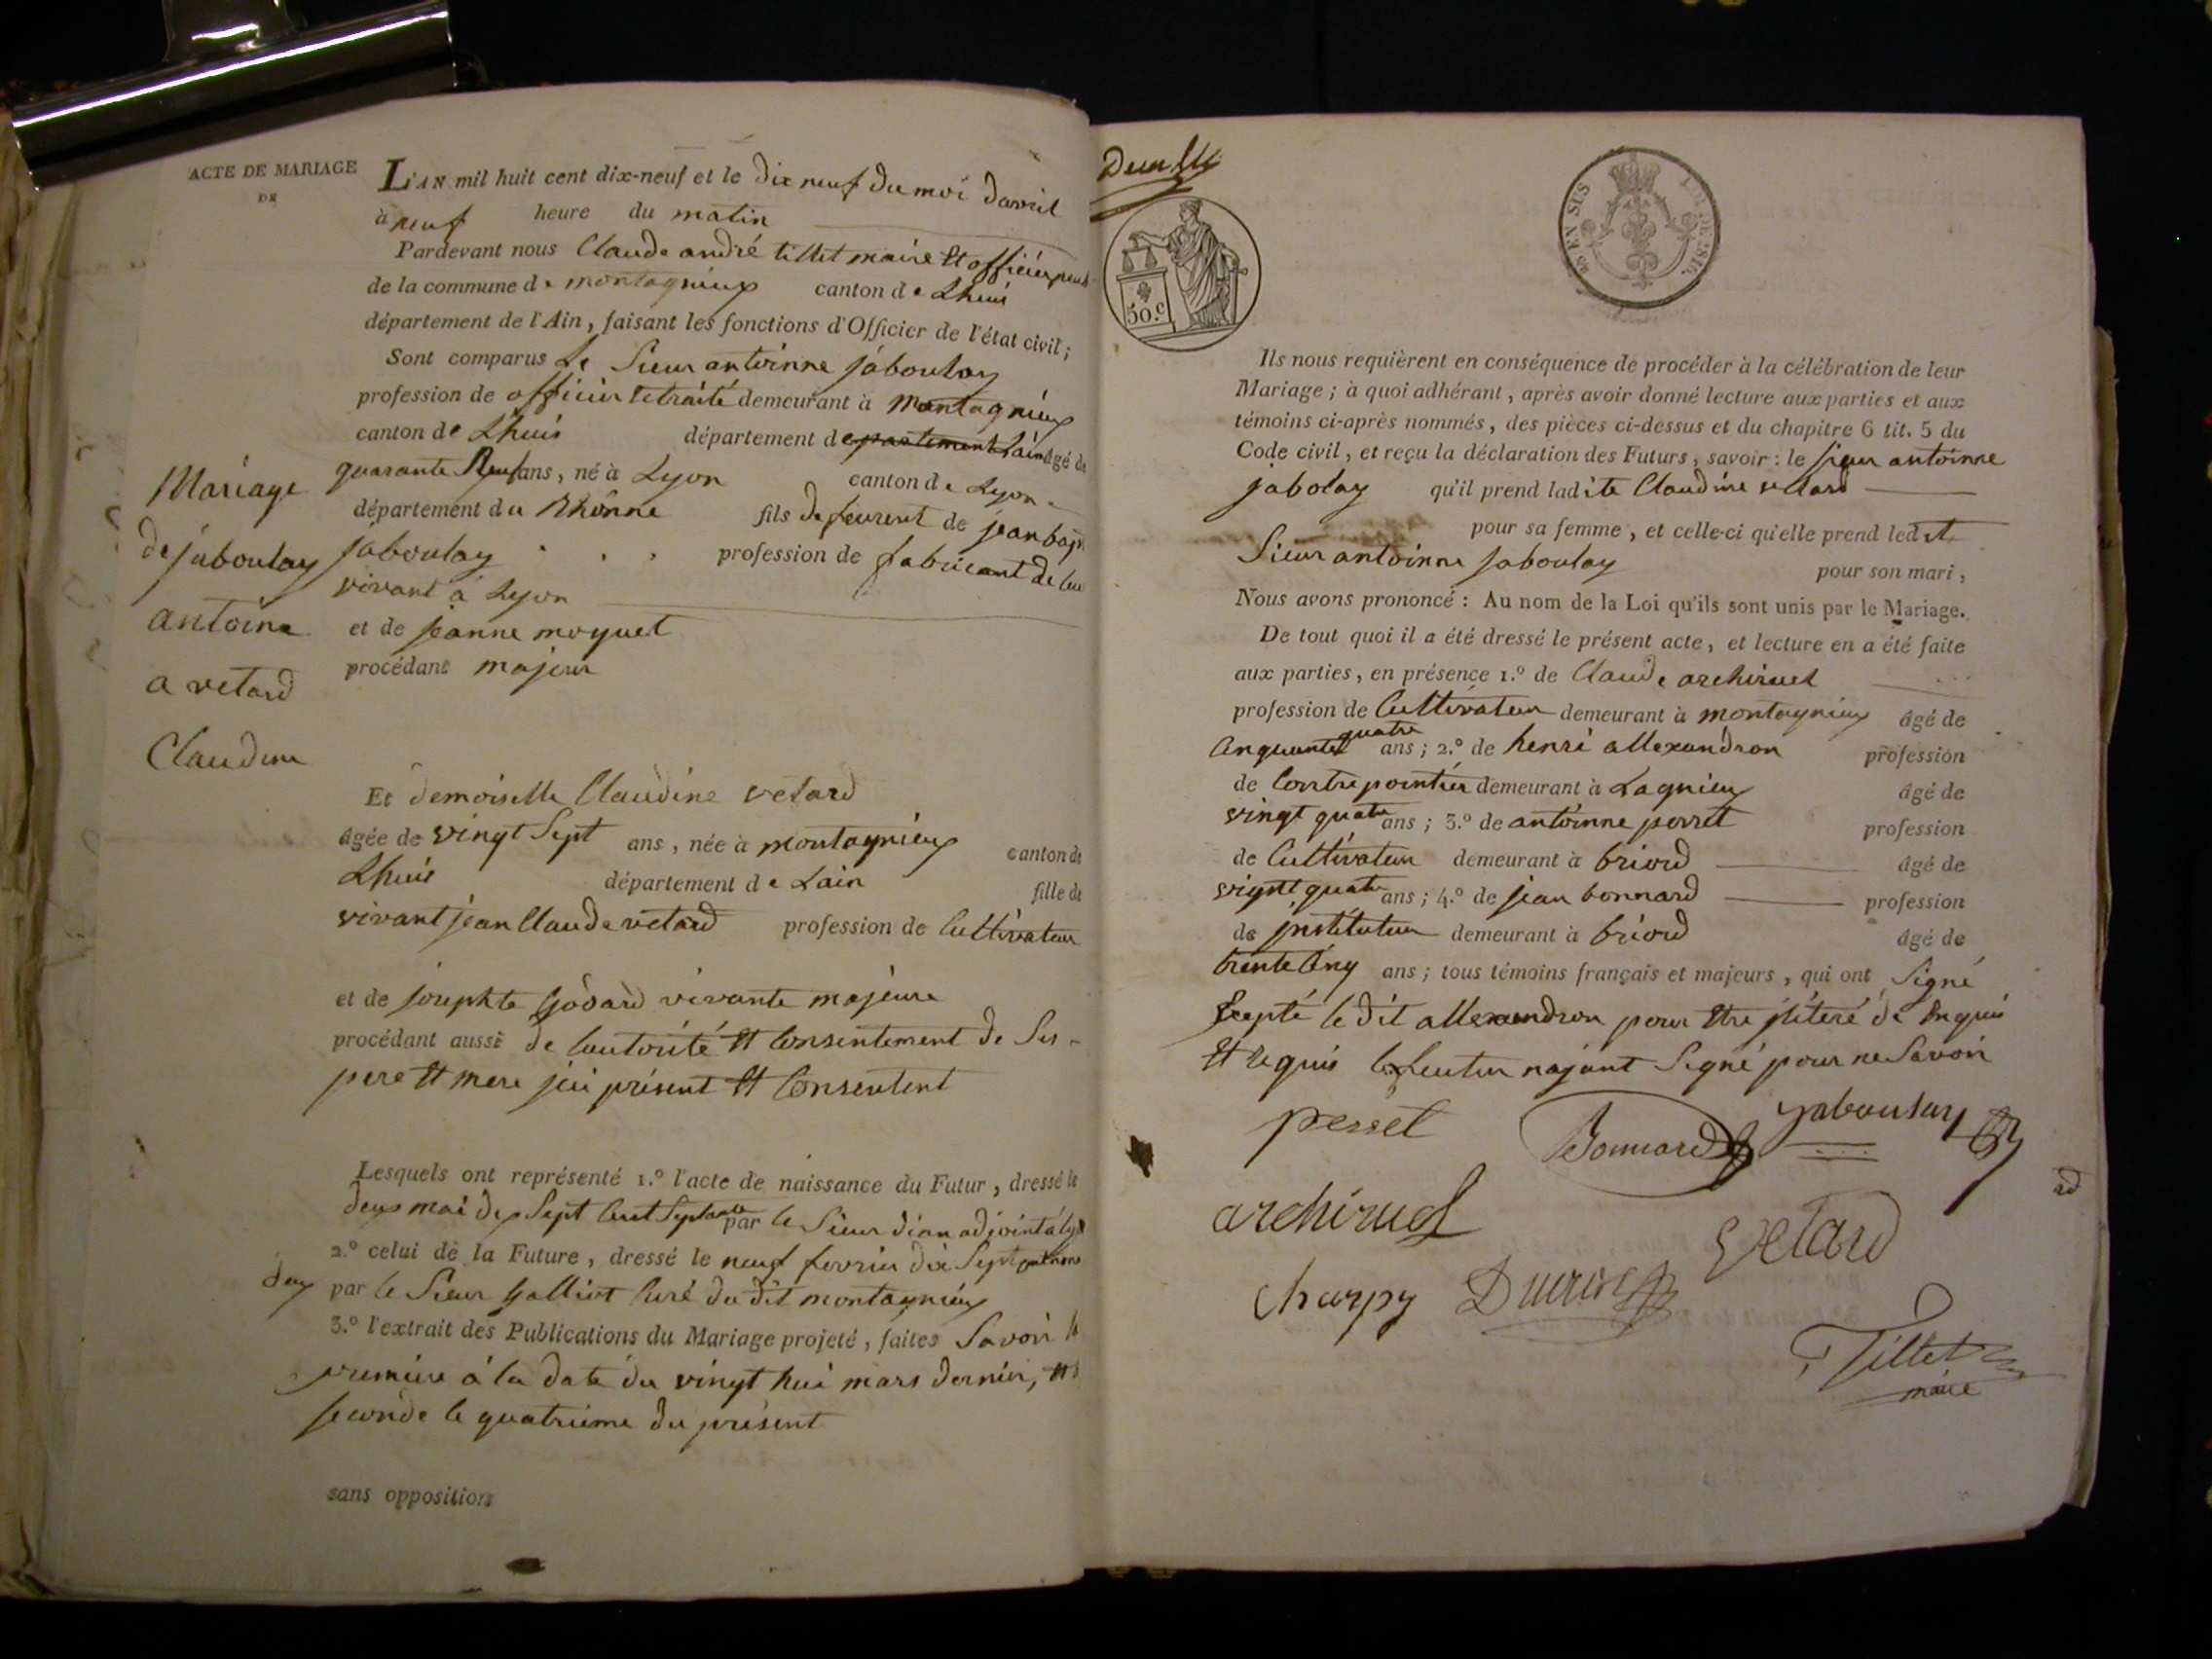 ACTE DE MARIAGE
DE
Mariage
de jaboulay
antoine
a vetard
Claudine
L'AN mil huit cent dix-neuf et le dix neuf du moi davril
à neuf heure du matin
Pardevant nous Claude andré tillet maire Et officier
de la commune de montagnieux canton de Lhuis
département de l'Ain, faisant les fonctions d'Officier de l'état civil;
Sont comparus Le Sieur antoinne jaboulay
profession de officier retraité demeurant à Montagnieux
canton de Lhuis département departement Lain âgé de
quarante Neuf ans, né à Lyon canton de Lyon
département du Rhônne fils de feu de jean
jaboulay profession de fabricant de
vivant à Lyon
et de jeanne moquet
procédant majeur
Et demoiselle Claudine vetard
âgée de vingt Sept ans, née à montagnieux canton de
Lhuis département de Lain fille de
vivant jean Claude vetard profession de Cultivateur
et de josephte Godard vivante majeure
procédant aussi de lautorité Et Consentement de Ses
pere Et mere jci présent Et Consentent
Lesquels ont représenté 1.º l'acte de naissance du Futur, dressé le
deux mai dix Sept Cent Septante par le Sieur adjoint à
2.º celui de la Future, dressé le neuf fevrier dix Sept
doux par le Sieur Galliot Curé du dit montagnieux
3.º l'extrait des Publications du Mariage projeté, faites Savoir
premiere à la date du vingt hui mars dernier,
seconde le quatrieme du présent
sans opposition
50.C
EN SUS LOI DE 1816.
Ils nous requièrent en conséquence de procéder à la célébration de leur
Mariage; à quoi adhérant, après avoir donné lecture aux parties et aux
témoins ci-après nommés, des pièces ci-dessus et du chapitre 6 tit. 5 du
Code civil, et reçu la déclaration des Futurs, savoir: le sieur antoinne
jabolay qu'il prend ladite Claudine vetard
pour sa femme, et celle-ci qu'elle prend ledit
Sieur antoinne jaboulay pour son mari,
Nous avons prononcé: Au nom de la Loi qu'ils sont unis par le Mariage.
De tout quoi il a été dressé le présent acte, et lecture en a été faite
aux parties, en présence 1.º de Claude archiruel
profession de Cultivateur demeurant à montagnieux âgé de
Cinquante quatre ans; 2.º de henri allexandron profession
de Contrepointier demeurant à Lagnieu âgé de
vingt quatre ans; 3.º de antoinne perret profession
de Cultivateur demeurant à briord âgé de
vignt quatre ans; 4.º de jean bonnard profession
de jnstituteur demeurant à briord âgé de
trente Cinq ans; tous témoins français et majeurs, qui ont Signé
Ecepté le dit allexandron pour Etre jliteré de Enquis
Et requis la feutur nayant Signé pour ne Savoir
perret Bonnard jaboulay
archiruel vetard
charpy
Tillet
maire